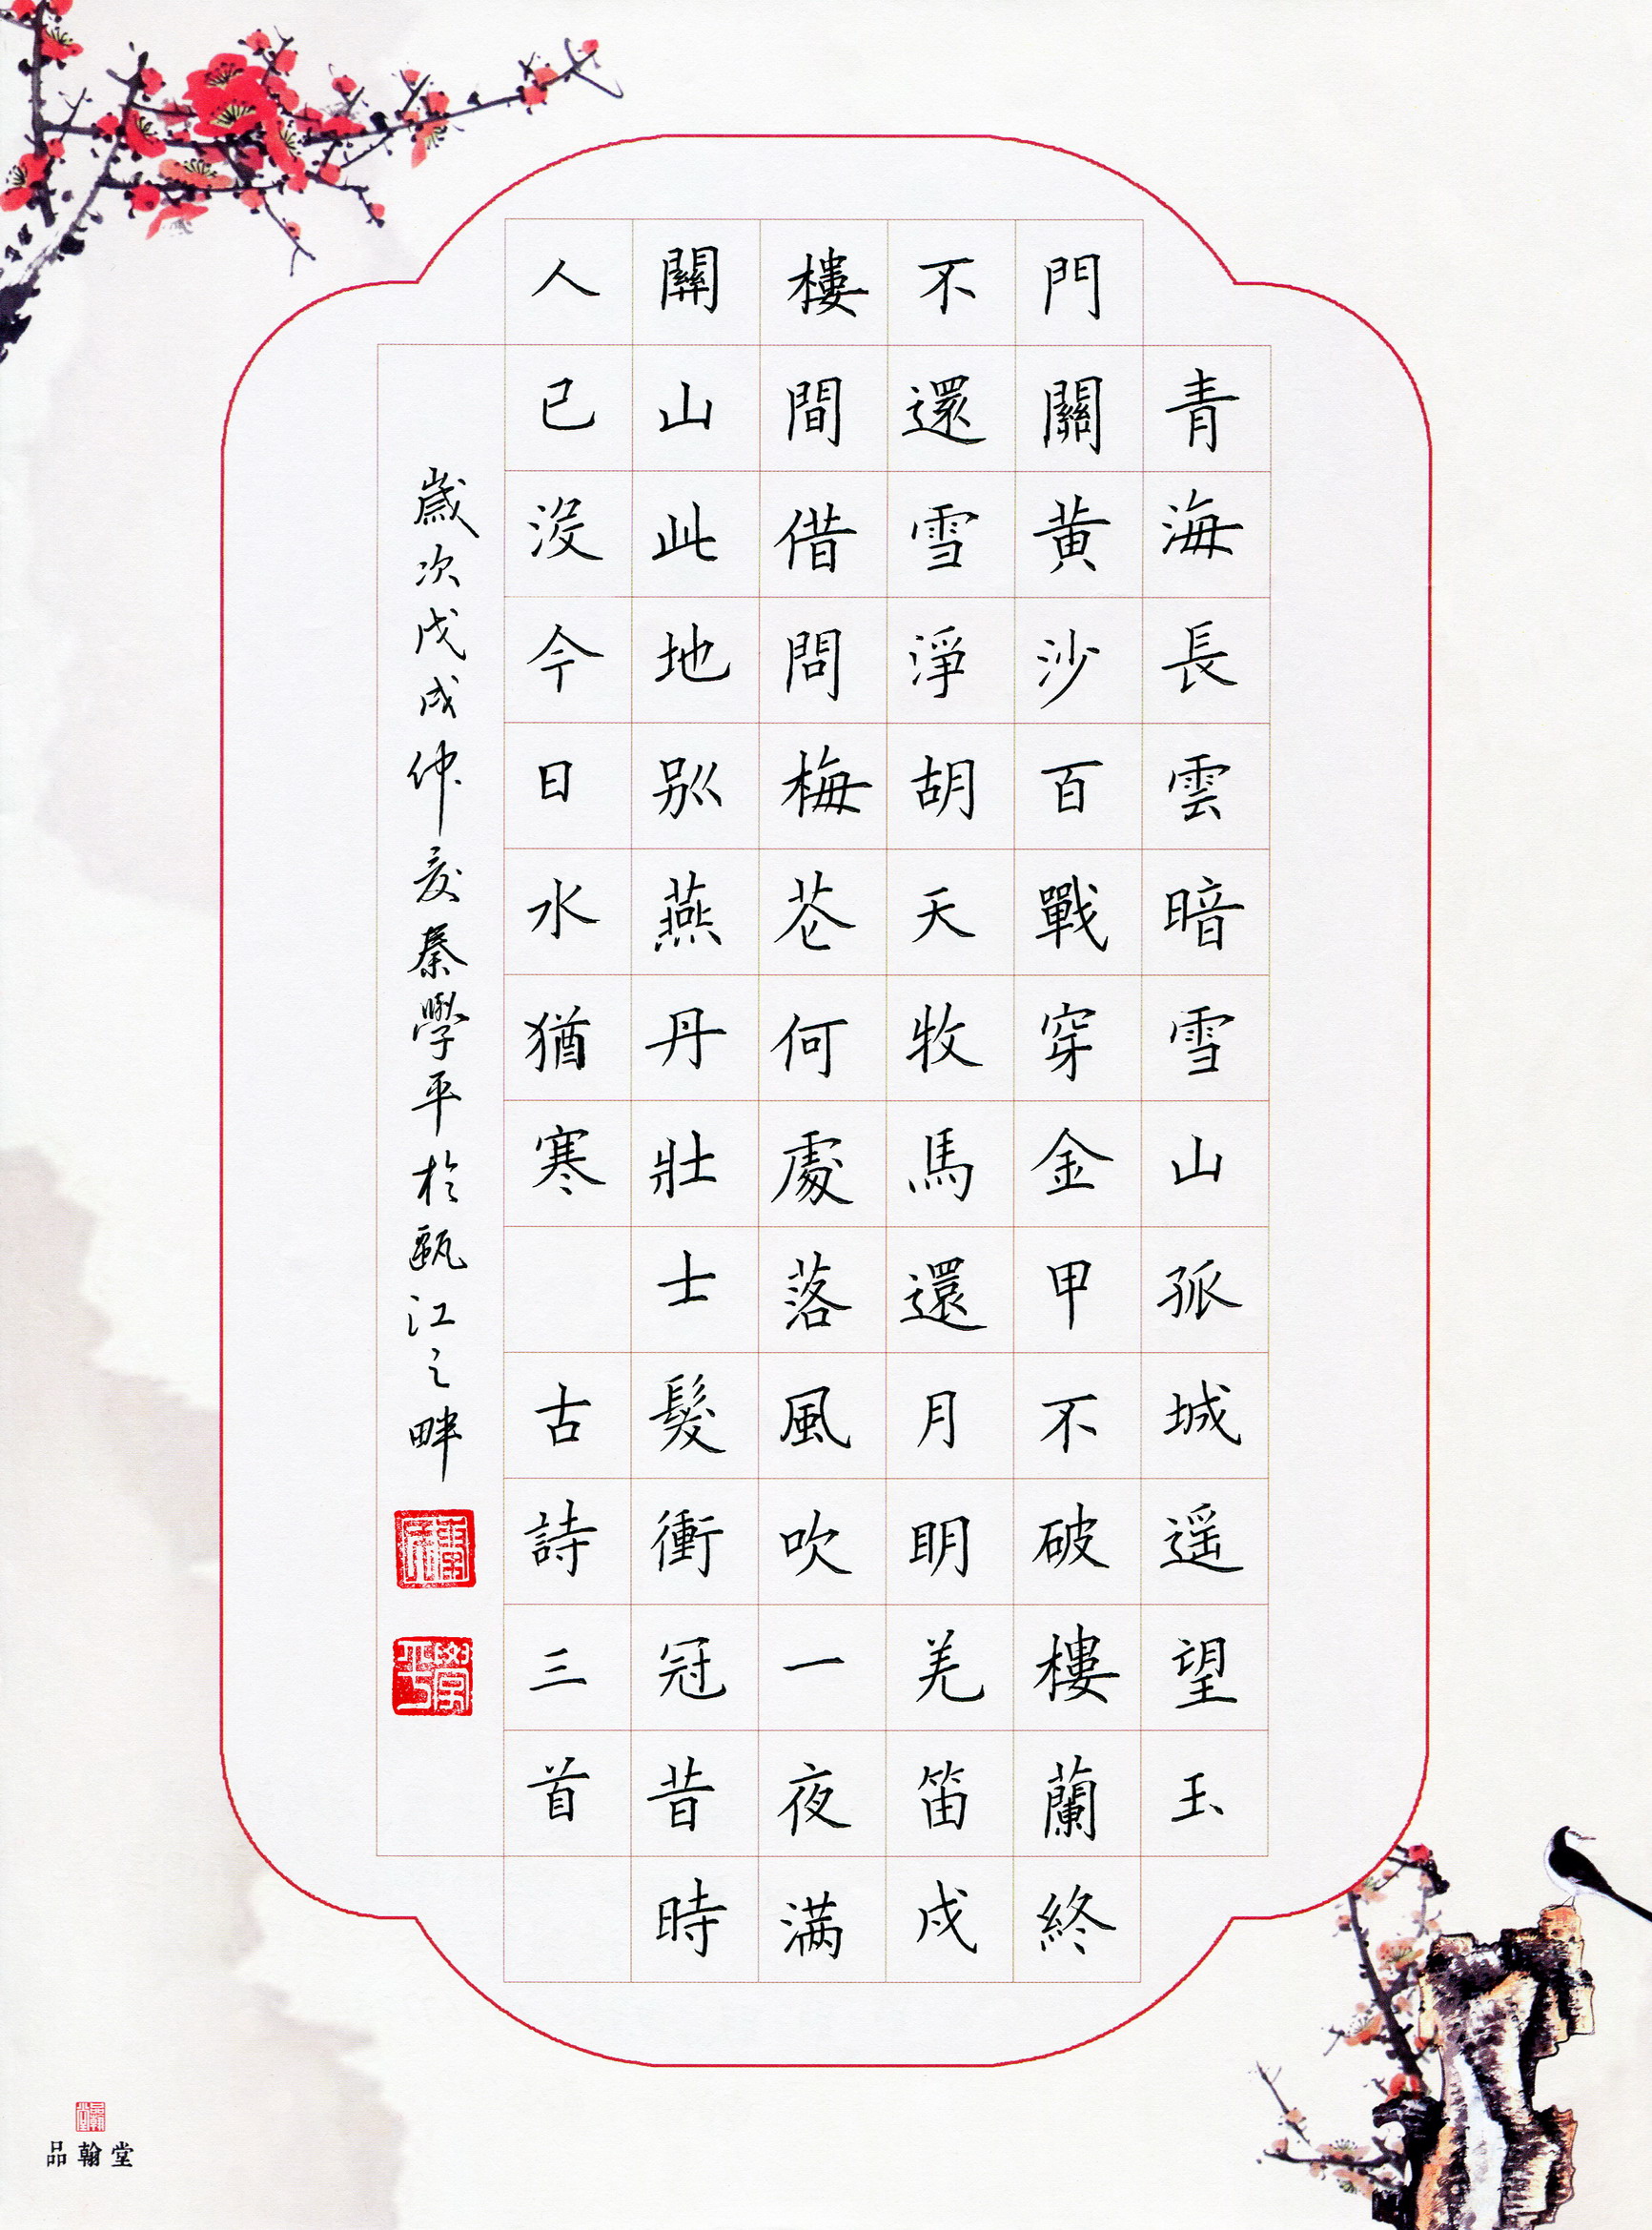 青海長雲暗雪山孤城遥望玉
門關黄沙百戰穿金甲不破樓蘭終
不還雪淨胡天牧馬還月明羌笛戍
樓間借問梅花何處落風吹一夜满
關山此地别燕丹壯士髮衝冠昔時
人已没今日水猶寒 古詩三首
歲次戊戌仲夏秦學平於甌江之畔
學平
品翰堂
品翰堂